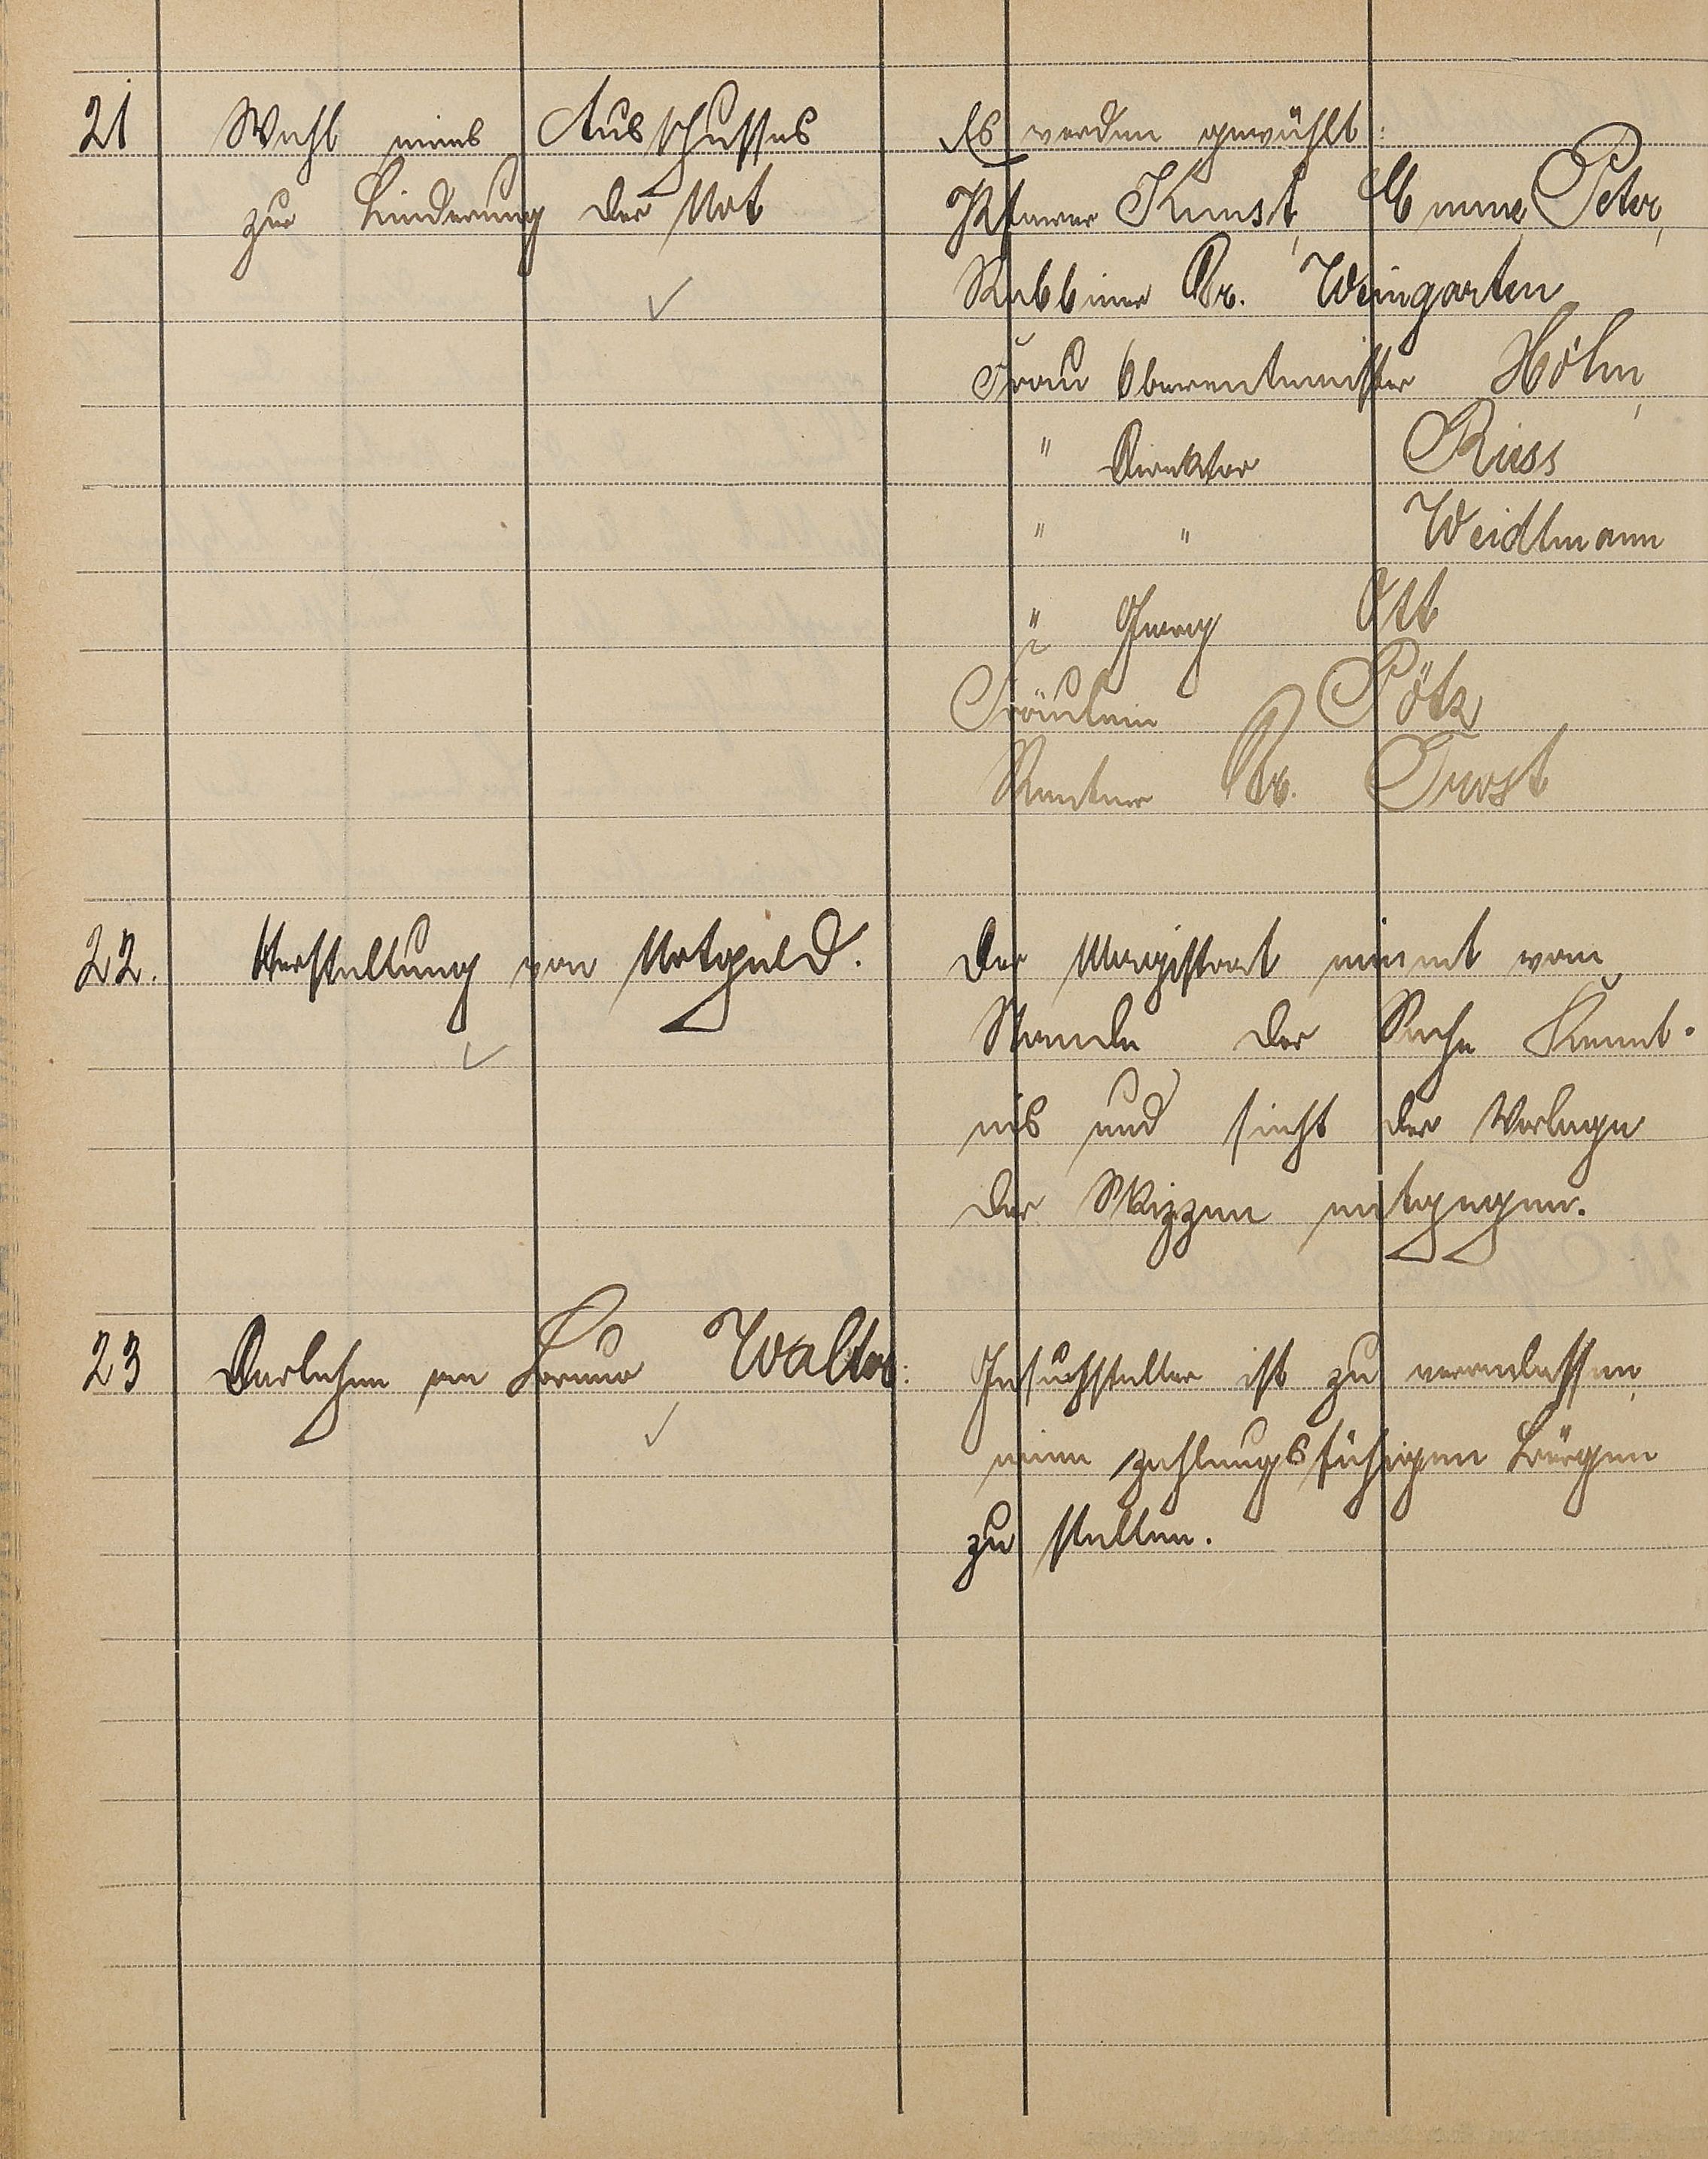 21 Wahl eines Ausschusses
zur Linderung der Not
Es werden gewählt:
Pfarrer Kunst, Peter,
Rabbiner Dr. Weingarten
Frau Oberrentmeister Höhn,
" Direktor Riess
" " Weidtmann
" Georg Ott
Fräulein Pötz
Rentner Dr. Trost
22. Herstellung von Notgeld.
Der Magistrat nimmt vom
Stande der Sache Kennt-
nis und sieht der Vorlage
der Skizzen entgegen.
23 Darlehen an Bremer Walter:
Gesuchsteller ist zu veranlassen,
einen zahlungsfähigen Bürgen
zu stellen.